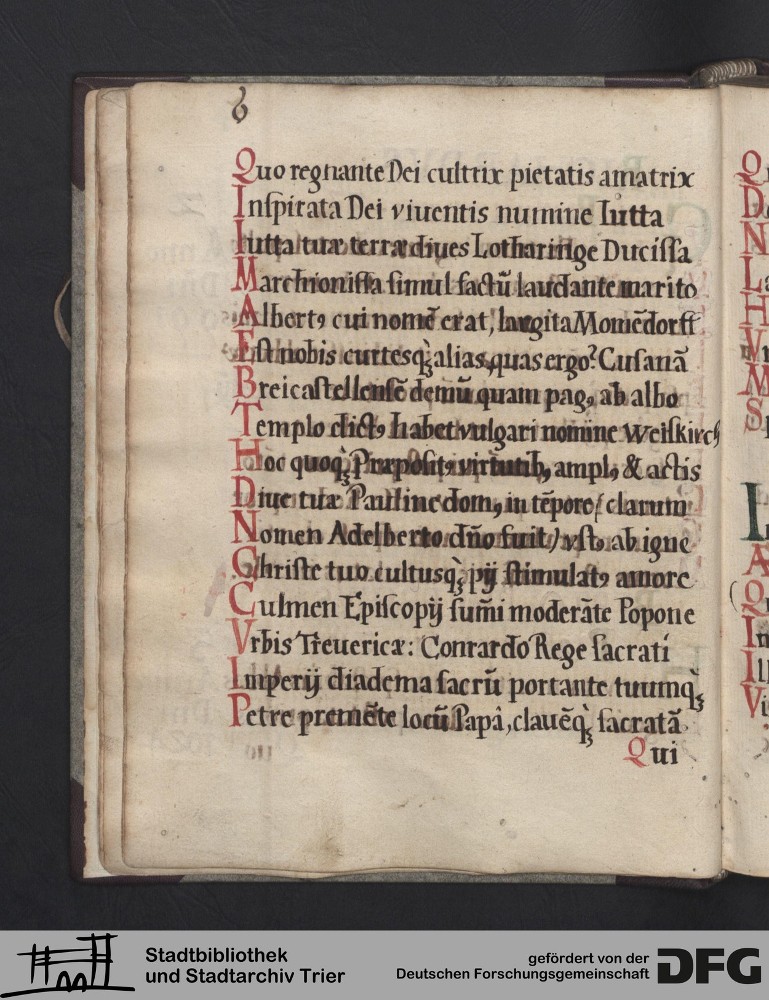 6
Quo regnante Dei cultrix pietatis amatrix
Inſpirata Dei viuentis numine Iutta
Iutta tuæ terræ diues Lotharinge Duciſſa
Marchioniſſa ſimul factũ laudante marito
Albertꝰ cui nomẽ erat, largita Momẽdorff
Eſt nobis curtesq̀ꝫ alias, quas ergo? Cuſanã
Breicaſtellenſẽ demũ quam pagꝰ ab albo
Templo dictꝰ habet vulgari nomine Weiſkirch
Hoc quoq̀ꝫ Præpoſitꝰ virtutibꝰ amplꝰ & actis
Diue tuæ Pauline domꝰ, in tẽpore (clarum
Nomen Adelberto dño fuit) vſtꝰ ab igne
Chriſte tuo cultusq̀ꝫ pij ſtimulatꝰ amore
Culmen Epiſcopij ſum̃i moderãte Popone
Vrbis Treuericæ: Conrardo Rege ſacrati
Imperij diadema ſacrũ portante tuumq̀ꝫ
Petre premẽte locũ Papâ, clauẽq̀ꝫ ſacratã
Qui
Stadtbibliothek
und Stadtarchiv Trier
gefördert von der
Deutschen Forschungsgemeinschaft
DFG